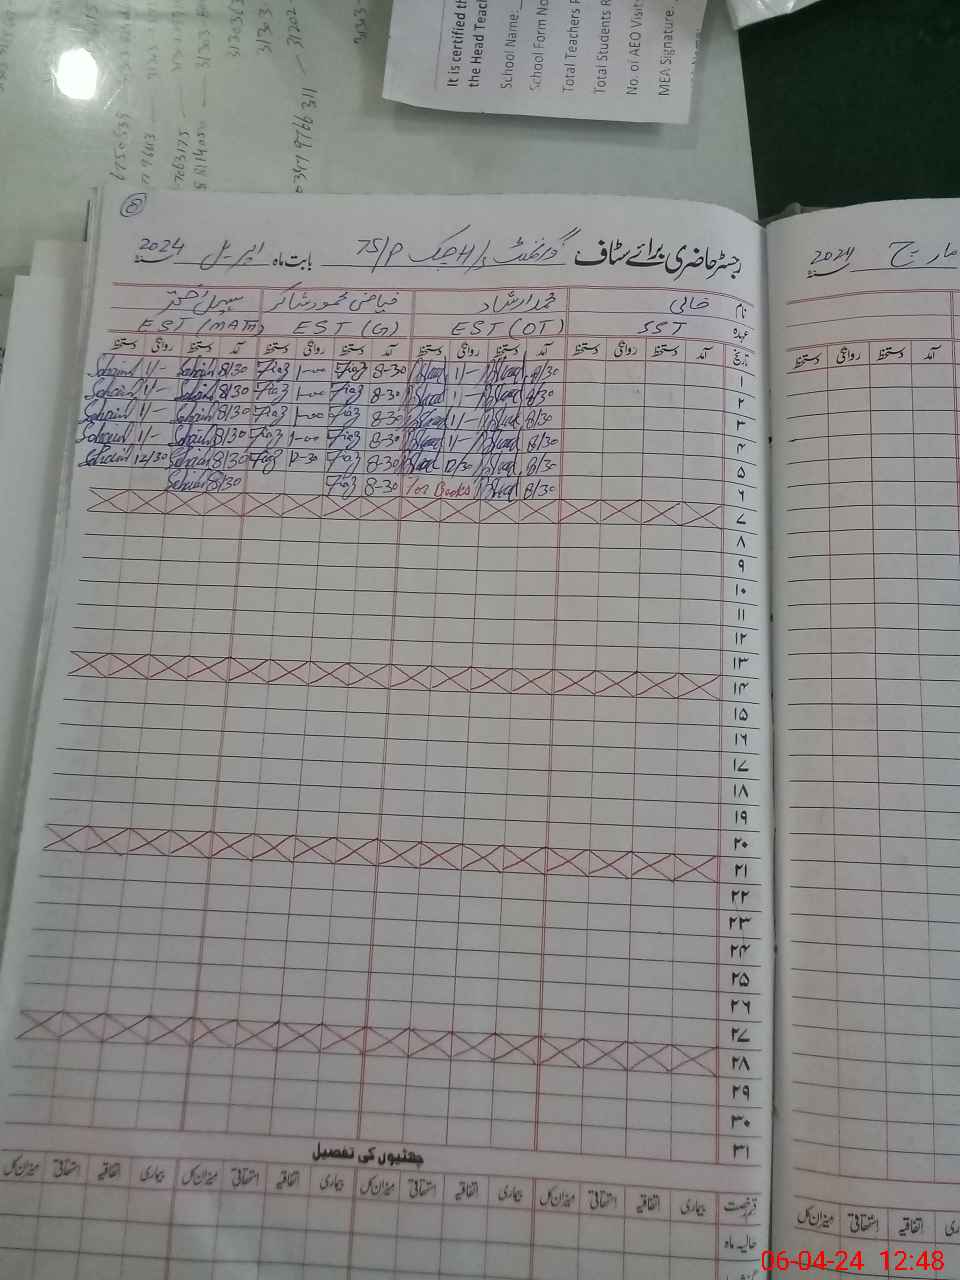 It is certified th
the Head Teach
School Name:
School Form No
Total Teachers P
Total Students R
No. of AEO Visits
MEA Signature:
0347 9766311
رجسٹر حاضری برائے سٹاف گورنمنٹ H/S چک 75/P بابت ماہ اپریل سنہ 2024
نام خالی محمد ارشاد فیاض محمود شاکر سہیل اختر
عہدہ SST EST (OT) EST (G) EST (MATH)
تاریخ آمد دستخط روانگی دستخط آمد دستخط روانگی دستخط آمد دستخط روانگی دستخط آمد دستخط روانگی دستخط
۱ 8/30 1/- 8-30 Fiaz 1-00 Fiaz 8/30 Sohail 1/- Sohail
۲ 8/30 1/- 8-30 Fiaz 1-00 Fiaz 8/30 Sohail 1/- Sohail
۳ 8/30 1/- 8-30 Fiaz 1-00 Fiaz 8/30 Sohail 1/- Sohail
۴ 8/30 1/- 8-30 Fiaz 1-00 Fiaz 8/30 Sohail 1/- Sohail
۵ 8/30 12/30 8-30 Fiaz 12-30 Fiaz 8/30 Sohail 12/30 Sohail
۶ 8/30 For Books 8-30 Fiaz 8/30 Sohail
۷
۸
۹
۱۰
۱۱
۱۲
۱۳
۱۴
۱۵
۱۶
۱۷
۱۸
۱۹
۲۰
۲۱
۲۲
۲۳
۲۴
۲۵
۲۶
۲۷
۲۸
۲۹
۳۰
۳۱
چھٹیوں کی تفصیل
قسم رخصت بیماری اتفاقیہ استحقاقی میزان کل بیماری اتفاقیہ استحقاقی میزان کل بیماری اتفاقیہ استحقاقی میزان کل بیماری اتفاقیہ استحقاقی میزان کل
حالیہ ماہ
مارچ سنہ 2024
آمد دستخط روانگی دستخط
اتفاقیہ استحقاقی میزان کل
06-04-24 12:48